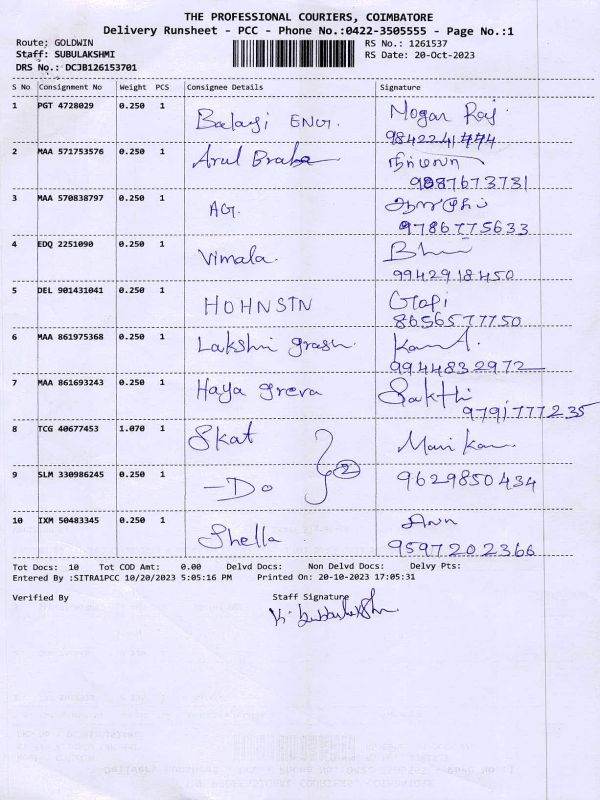 THE PROFESSIONAL COURIERS, COIMBATORE
Delivery Runsheet - PCC - Phone No.:0422-3505555 - Page No.:1
Route: GOLDWIN RS No.: 1261537
Staff: SUBULAKSHMI RS Date: 20-Oct-2023
DRS No.: DCJB126153701
S No Consignment No Weight PCS Consignee Details Signature
1 PGT 4728029 0.250 1 Balaji ENGI. Mogan Raj
9842241474
2 MAA 571753576 0.250 1 Arul நிர்மலா
9087673731
3 MAA 570838797 0.250 1 AG.
9786775633
4 EDQ 2251090 0.250 1 Vimala.
9942918450
5 DEL 901431041 0.250 1 HOHNSTN Gopi
8656577750
6 MAA 861975368 0.250 1 Lakshmi
9944832972
7 MAA 861693243 0.250 1 Haya greva Sakthi
9791777235
8 TCG 40677453 1.070 1 Skat Mari
9 SLM 330986245 0.250 1 -Do 2 9629850434
10 IXM 50483345 0.250 1 Shella
9597202366
Tot Docs: 10 Tot COD Amt: 0.00 Delvd Docs: Non Delvd Docs: Delvy Pts:
Entered By :SITRA1PCC 10/20/2023 5:05:16 PM Printed On: 20-10-2023 17:05:31
Verified By Staff Signature